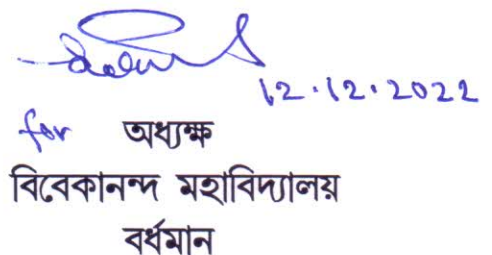 12.12.2022
for অধ্যক্ষ
বিবেকানন্দ মহাবিদ্যালয়
বর্ধমান